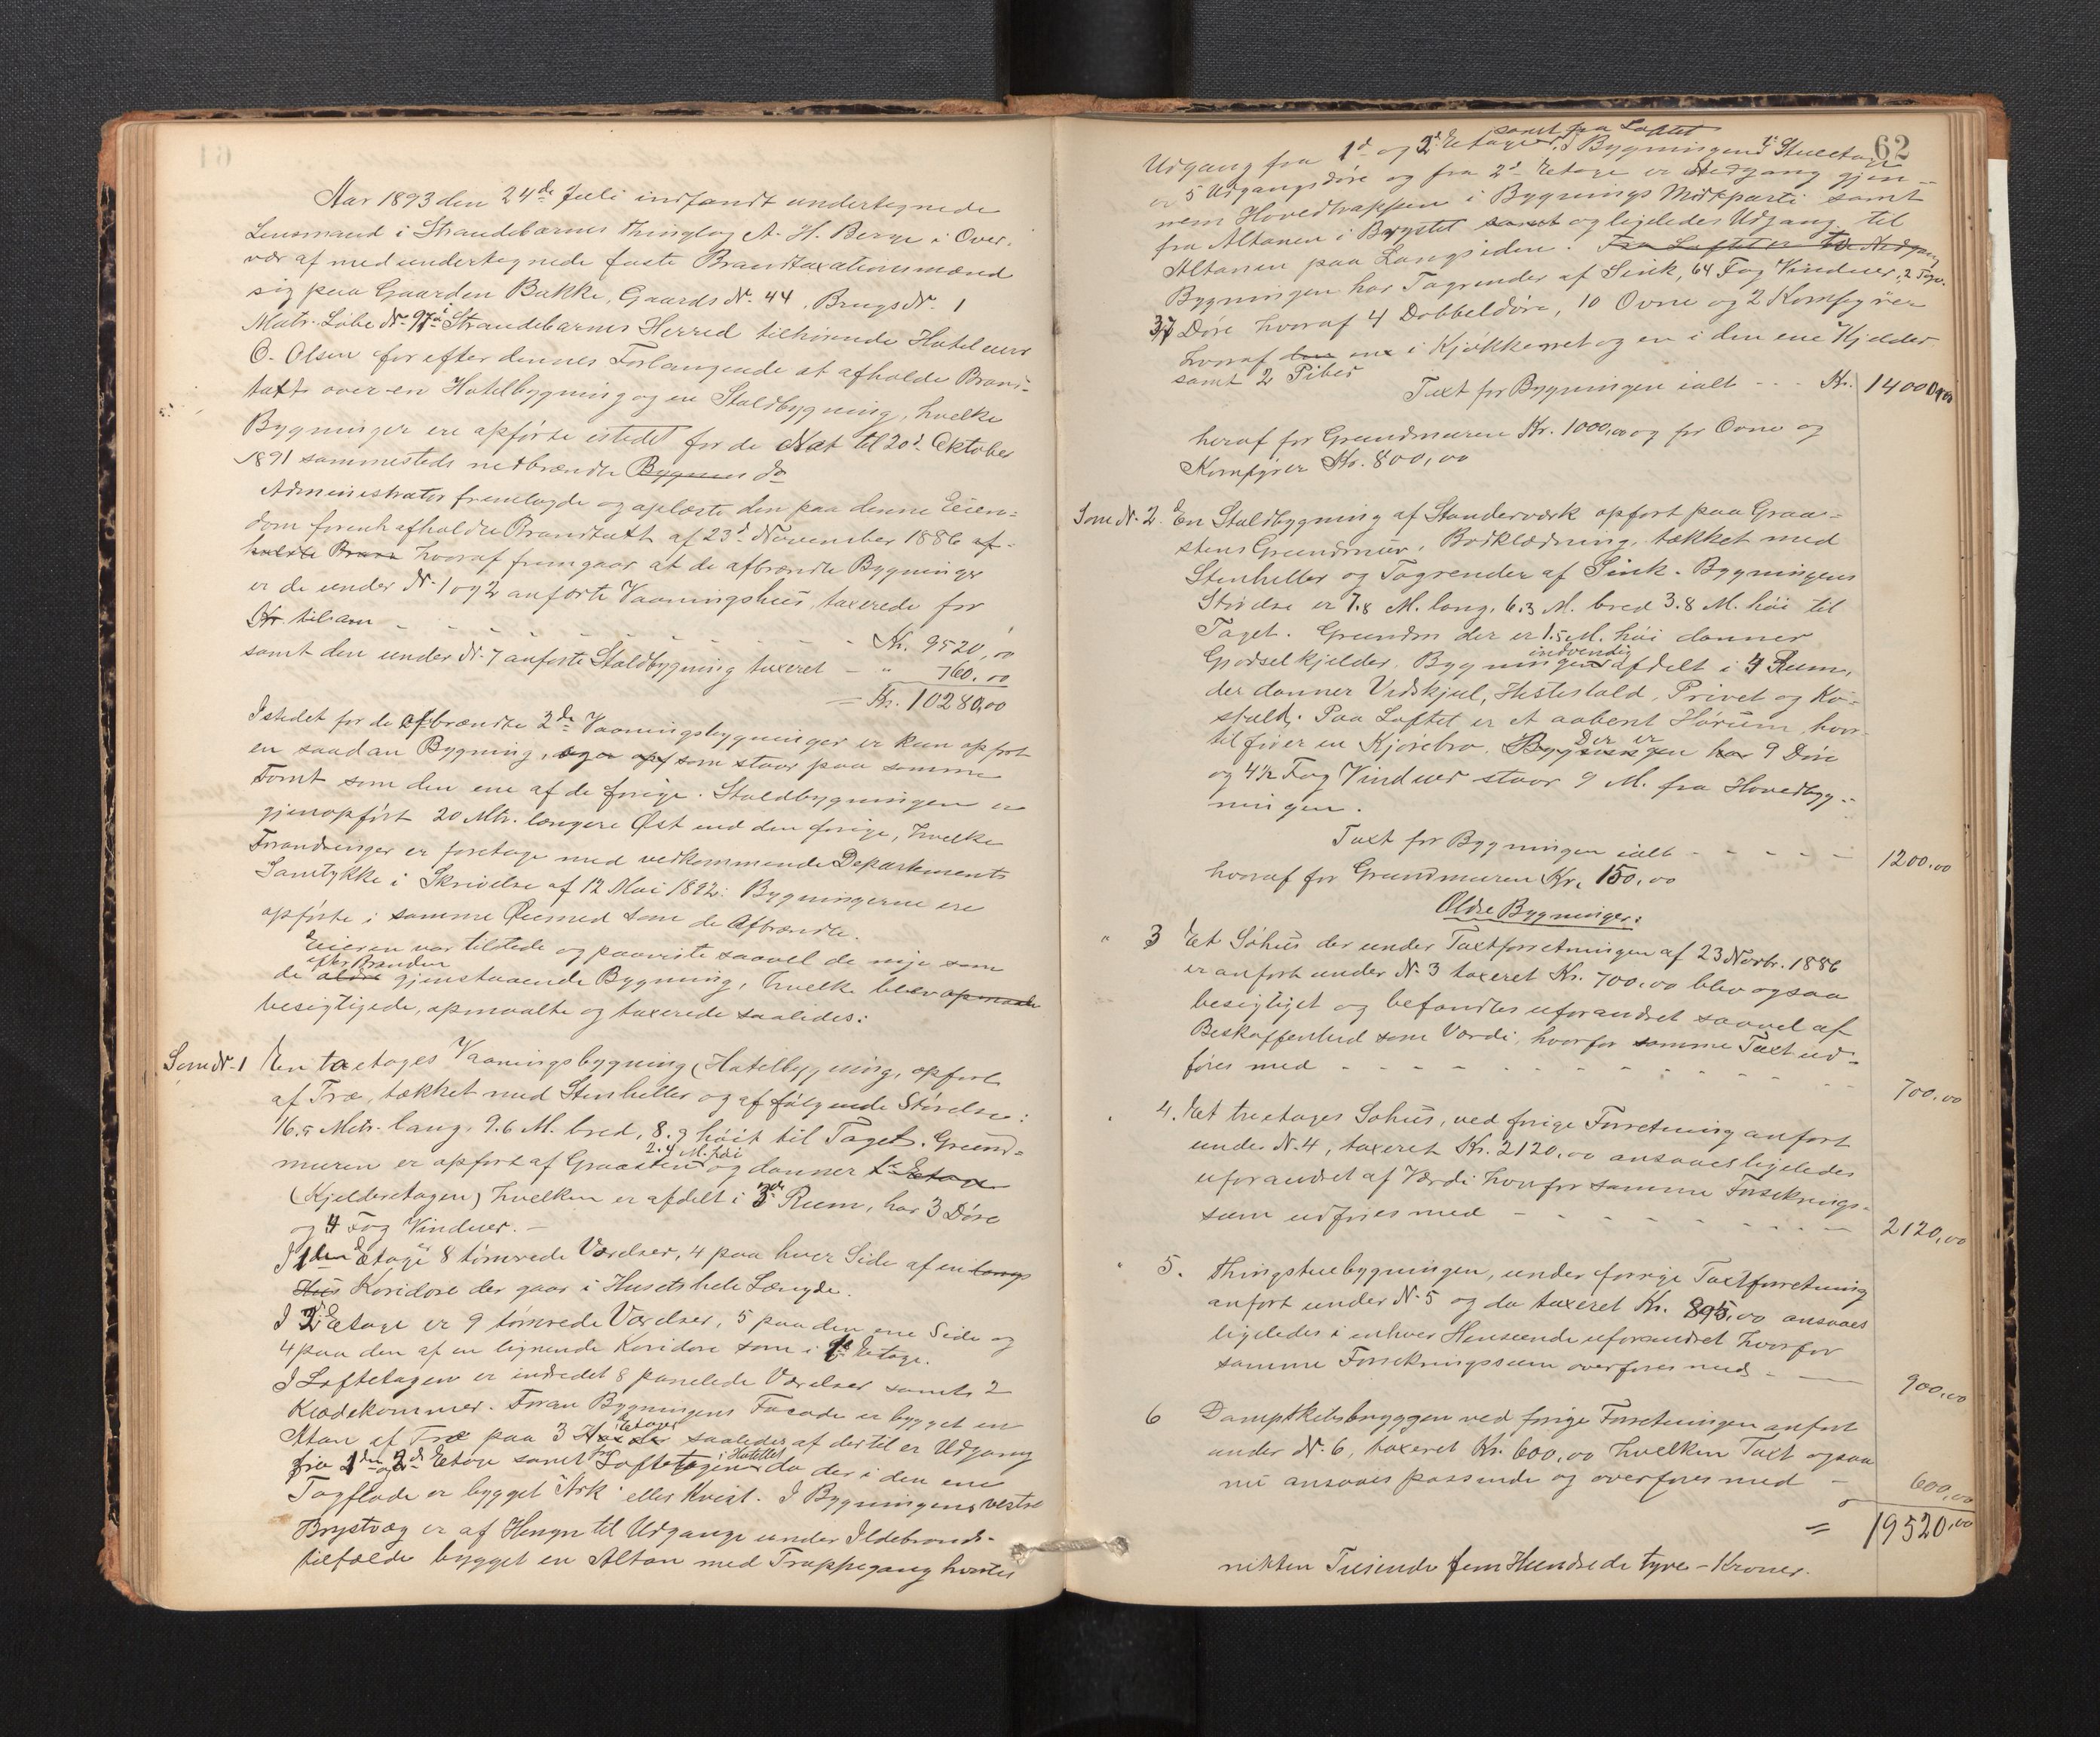 Aar 1893 den 24de Juli indfandt undertegnede
Lensmand i Strandebarms Thinglag A. H. Berge i Over-
vær af med undertegnede faste Brandtaxationsmænd
sig paa Gaarden Bakke, Gaards No. 44, Brugs No. 1
Matr. Løbe No. 97a Strandebarms Herred tilhørende Hoteleier
O. Olsen for efter dennes Forlangende at afholde Brand-
taxt over en Hotelbygning og en Staldbygning, hvilke
Bygninger ere opførte istedet for de Nat til 20d Oktober
1891 sammesteds nedbrændte Bygninger do
Administrator fremlagde og oplæste den paa denne Eien-
dom forenh afholdte Brandtaxt af 23d November 1886 af-
holdte Brann hvoraf fremgaar at de afbrændte Bygninger
er de under No. 1 og 2 anførte Vaaningshus, taxerede for
Kr. tilsam - - - - - - - - Kr. 9520,00
samt den under No. 7 anførte Staldbygning taxeret - " 760,00
= Kr. 10280,00
Istedet for de afbrændte 2de Vaaningsbygninger er kun opført
en saadan Bygning, som staar paa samme
Tomt som den ene af de forige. Staldbygningen er
gjenopført 20 Mtr. længere Øst end den forige, hvilke
Forandringer er foretage med vedkommende Departements
Samtykke i Skrivelse af 12 Mai 1892. Bygningerne ere
opførte i samme Øiemed som de Afbrændte.
Eieren var tilstede og paaviste saavel de nye som
efter Branden
de ældre gjenstaaende Bygning, hvilke blev opmaalt
besigtigede, opmaalte og taxerede saaledes:
Som No. 1 En toetages Vaaningsbygning (Hotelbygning, opført
af Træ, tækket med Stenheller og af følgende Størelse:
16.5 Mtr. lang, 9.6 M. bred, 8.9 høit til Taget. Grund-
2.4 M. høi
muren er opført af Graasten og danner 1ste Etage
(Kjelderetagen) hvilken er afdelt i 3de Rum, har 3 Døre
og 4 Fag Vinduer. -
I 1den Etage er 8 tømrede Værelser, 4 paa hver Side af en langs
Hus Koridore der gaar i Husets hele Længde.
I 2d Etage er 9 tømrede Værelser, 5 paa den ene Side og
4 paa den af en lignende Koridore som i 1d Etage.
I Loftetagen er indredet 8 panelede Værelser samt 2
Klædekommer. Foran Bygningens Facade er bygget en
Altan af Træ paa 3 Etager saaledes af der til er Udgang
fra 1den og 2d Etage samt fra Loftetagen i Hotellet da der i den ene
Tagflade er bygget "Ark" eller Kvist. I Bygningens vestre
Brystvæg er af Hensyn til Udgange under Ildebrands-
tilfælde bygget en Altan med Trappegang hvortil
62
samt fra Loftet
Udgang fra 1d og 2d Etager, I Bygningens Stueetage
er 5 Udgangsdøre og fra 2d Etage er Nedgang gjen-
nem Hovedtrappen i Bygnings Midtparti samt
fra Altanen i Brystet samt og ligeledes Udgang til
Altanen paa Langsiden. Fra Loftet er to Nedgang
Bygningen har Tagrender af Sink, 64 Fag Vinduer, 2 Tagv.
37 Døre hvoraf 4 Dobbeldøre, 10 Ovne og 2 Komfyrer
hvoraf den en i Kjøkkenet og en i den ene Kjelder
samt 2 Piber
Taxt for Bygningen ialt - - - Kr. 14000,00
heraf for Grundmuren Kr. 1000,00 og for Ovne og
Komfyrer Kr. 800,00
Som No. 2. En Staldbygning af Standerværk opført paa Graa-
stens Grundmur, Bordklædning, tækket med
Stenheller og Tagrender af Sink. Bygningens
Størelse er 7.8 M. lang, 6.3 M. bred 3.8 M. høi til
Taget. Grundm der er 1.5 M. høi danner
indvendig
Gjødselkjelder. Bygningen afdelt i 4 Rum,
der danner Vedskjul, Hestestald, Privet og Ko-
stald. Paa Loftet er et aabent Hørum, hvor-
Der er
til fører en Kjørebro. Bygningen har 9 Døre
og 4½ Fag Vinduer staar 9 M. fra Hovedbyg-
ningen.
Taxt for Bygningen ialt - - - - - 1200,00
hvoraf for Grundmuren Kr. 150,00
Ældre Bygninger:
" 3 Et Søhus der under Taxtforretningen af 23 Novbr. 1886
er anført under No. 3 taxeret Kr. 700,00 blev ogsaa
besigtiget og befandtes uforandret saavel af
Beskaffenhed som Værdi, hvorfor samme Taxt ud-
føres med - - - - - - - - 700,00
" 4. Et treetages Søhus, ved forige Forretning anført
under No. 4, taxeret Kr. 2120,00 ansaaes ligeledes
uforandret af Værdi hvorfor samme Forsikrings-
sum udføres med - - - - - - - 2120,00
" 5. Thingstuebygningen, under forrige Taxtforretning
anført under No. 5 og da taxeret Kr. 895,00 ansaaes
ligeledes i enhver Henseende uforandret hvorfor
samme Forsikringssum overføres med - - 900,00
6 Dampskibsbryggen ved forige Forretningen anført
under No. 6, taxeret Kr. 600,00 hvilken Taxt ogsaa
nu ansaaes passende og overføres med - 600,00
= 19520,00
nitten Tusinde fem Hundrede tyve - Kroner.